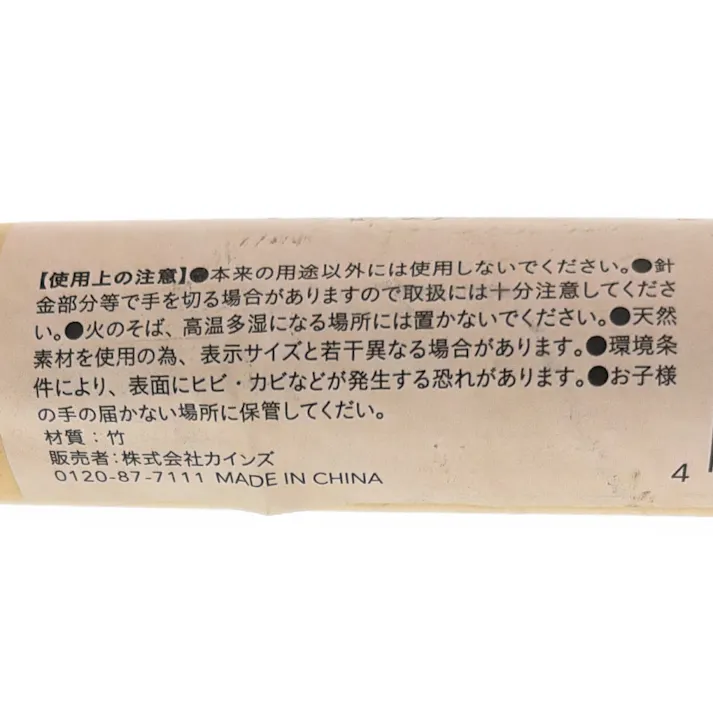 【使用上の注意】●本来の用途以外には使用しないでください。●針
金部分等で手を切る場合がありますので取扱には十分注意してくださ
い。●火のそば、高温多湿になる場所には置かないでください。●天然
素材を使用の為、表示サイズと若干異なる場合があります。●環境条
件により、表面にヒビ・カビなどが発生する恐れがあります。●お子様
の手の届かない場所に保管してくだい。
材質：竹
販売者：株式会社カインズ
0120-87-7111 MADE IN CHINA
4